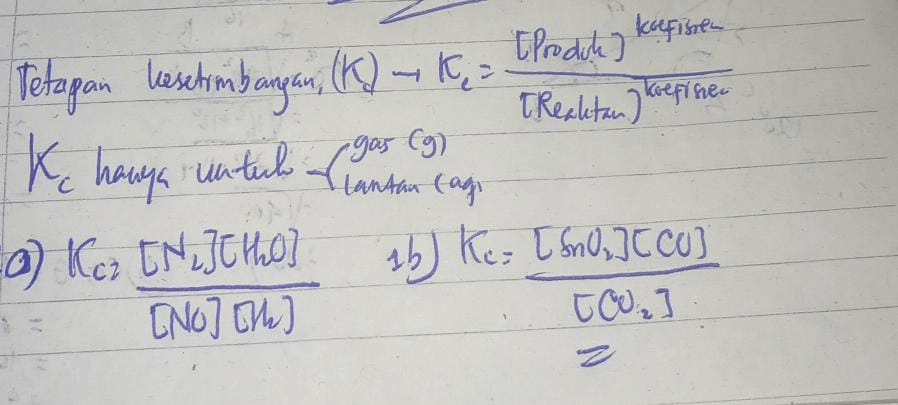 Tetapan kesetimbangan, (Kc) → Kc = [Produk]^koefisien / [Reaktan]^koefisien
Kc hanya untuk { gas (g)
larutan (aq)
a) Kc = [N₂][H₂O] / [NO][H₂]
1b) Kc = [SnO₂][CO] / [CO₂]
=